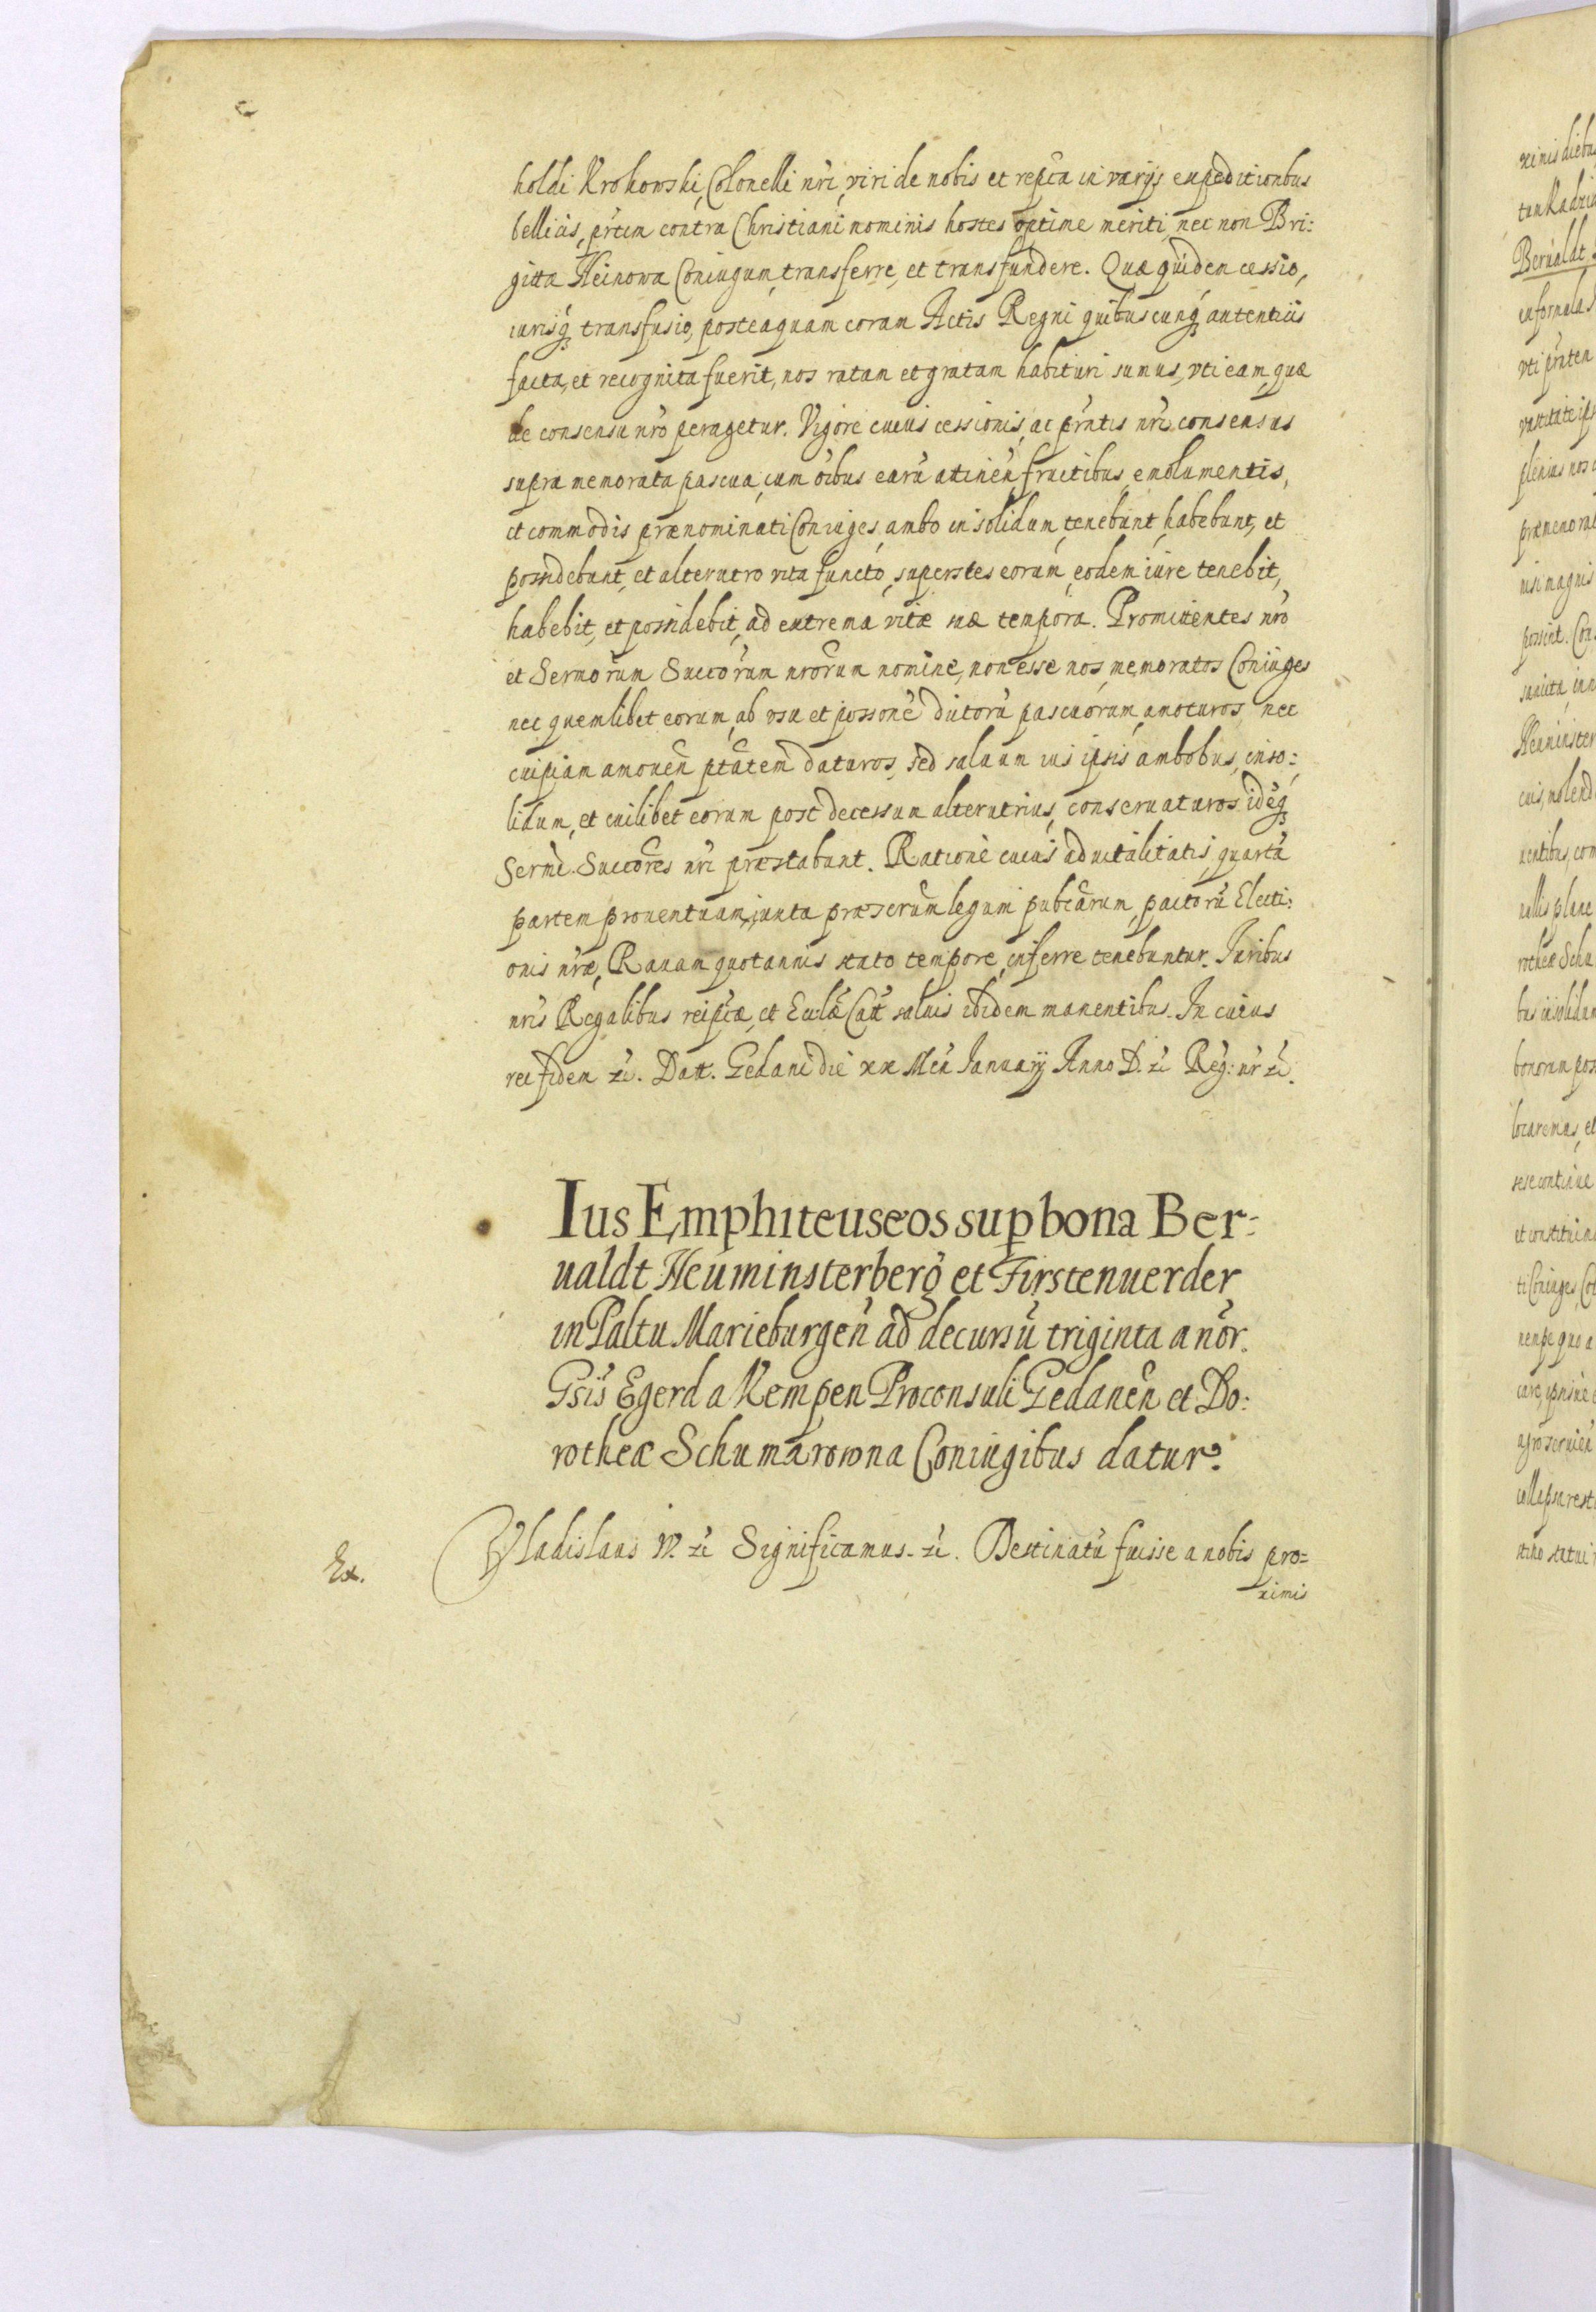 holdi Krokowski, Colonelli nri, viri de nobis et repca in varijs expeditionbus
bellicis, prtim contra Christiani nominis hostes optime meriti, nec non Bri:
gitta Heinowa Coniugum, transferre, et transfundere. Quæ quidem cessio,
iurisq transfusio, posteaquam coram Actis Regni quibuscunq autenticis
facta, et recognita fuerit, nos ratam et gratam habituri sumus, vti eam, quæ
de consensu nro peragetur. Vigore cuius cessionis, ac prntis nri consensus
supra memorata pascua, cum oibus earu attinen fructibus, emolumentis,
et commodis prænominati Coniuges, ambo in solidum, tenebunt, habebunt, et
possidebunt, et alterutro vita functo, superstes eorum, eodem iure tenebit,
habebit, et possidebit, ad extrema vitæ suæ tempora. Promittentes nro
et Sermorum Succorum nrorum nomine, non esse nos, memoratos Coniuges
nec quemlibet eorum, ab vsu et possone dictoru pascuorum, amoturos, nec
cuipiam amouen ptatem daturos, sed saluum ius ipsis ambobus, in so:
lidum, et cuilibet eorum post decessum alterutrius, conseruaturos. ideq
Sermi. Succores nri præstabunt. Ratione cuius aduitalitatis, quarta
partem prouentuum, iuxta præscrum legum pubcarum, pactoru Electi:
onis nræ, Rauam quotannis stato tempore, inferre tenebuntur. Iuribus
nris Regalibus reipcæ, et Ecclæ Catt saluis ibidem manentibus. In cuius
rei fidem &. Datt. Gedani die xx Men Ianuarij Anno D. & Reg: nr &.
Ius Emphiteuseos sup bona Ber-
ualdt Heuminsterberg et Firstenuerder
in Paltu Marieburgen ad decursu triginta anor.
Gsis Egerd a Kempen Proconsuli Gedanen et Do:
rotheæ Schumarowna Coniugibus datur.
Ex.
Vladislaus IV. & Significamus. &. Destinatu fuisse a nobis pro=
ximis